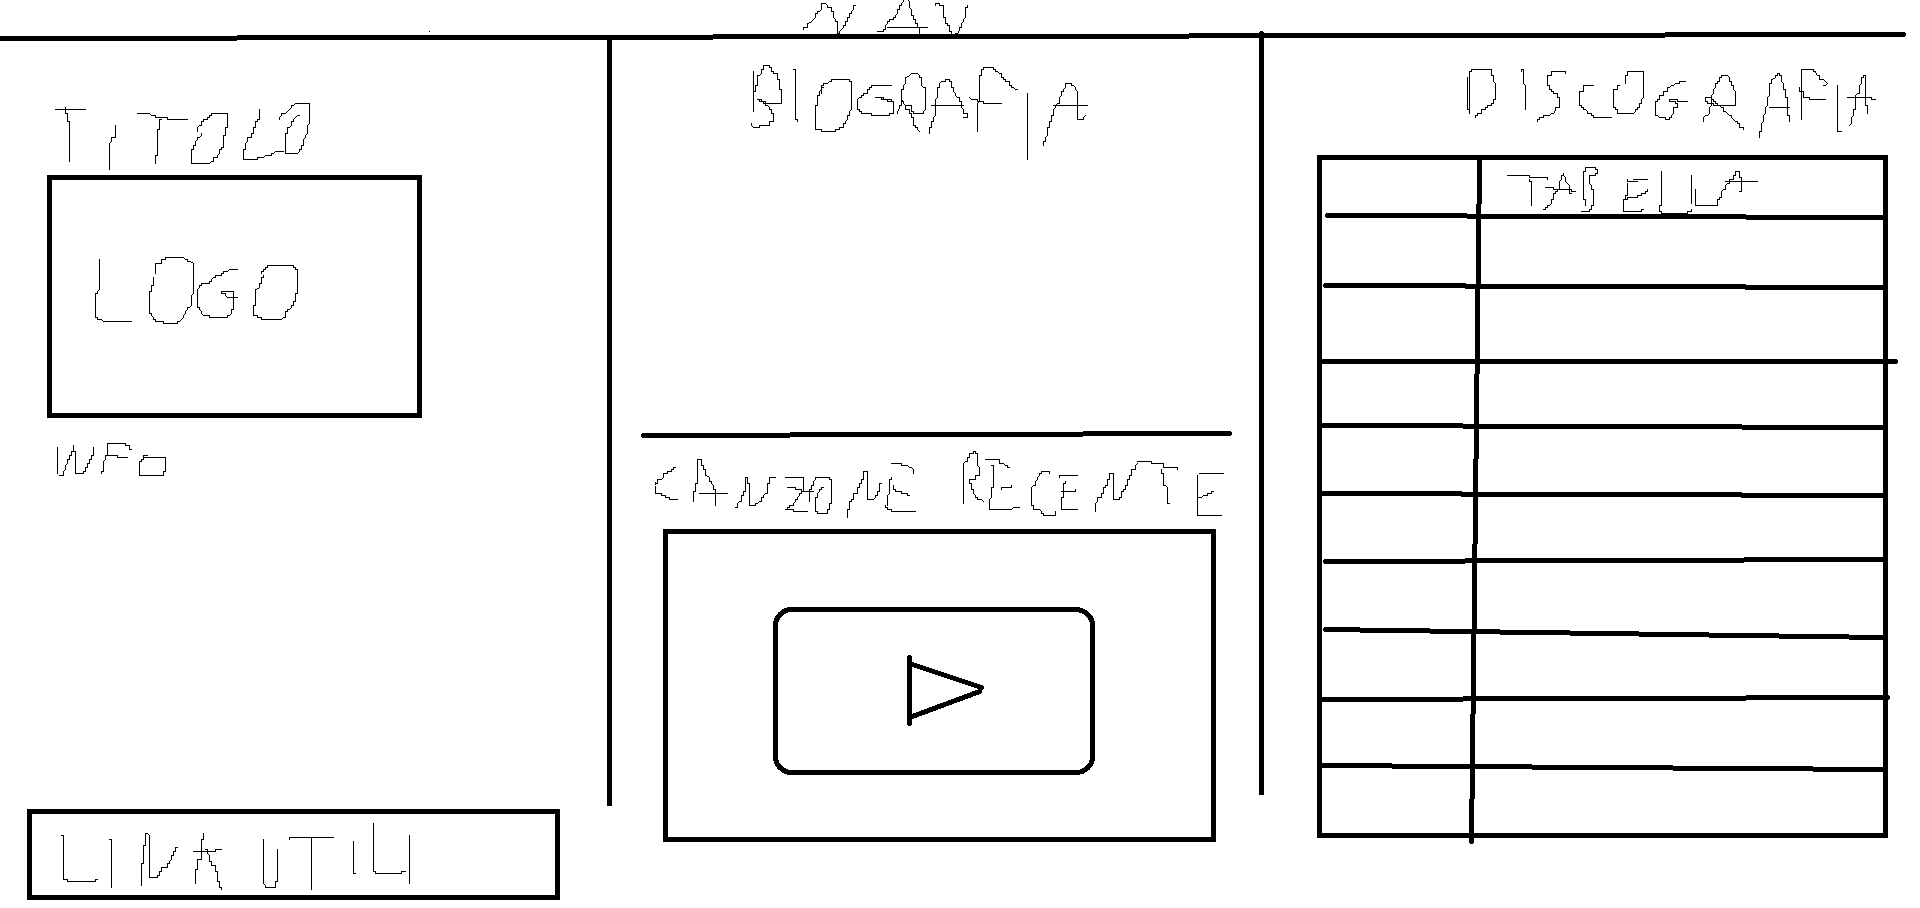 NAV
TITOLO
LOGO
INFO
LINK UTILI
BIOGRAFIA
CANZONE RECENTE
DISCOGRAFIA
TABELLA